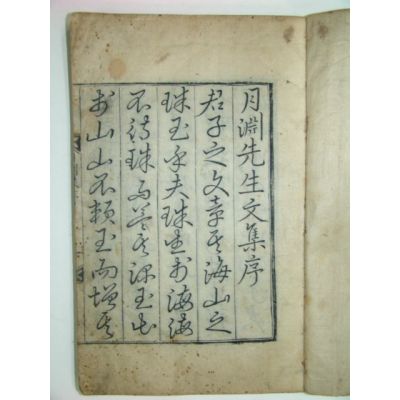 月淵先生文集序
君子之文章其海山之
珠玉乎夫珠生於海海
不待珠而益其深玉出
於山山不賴玉而增其